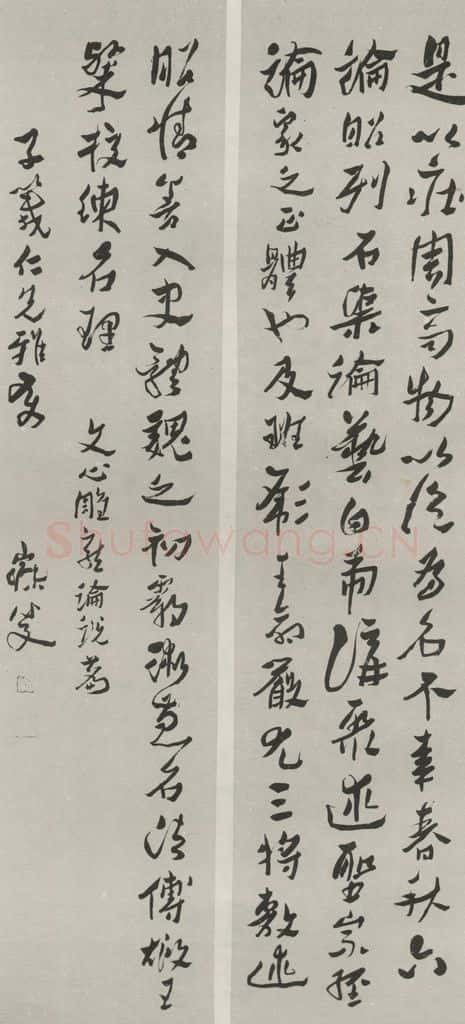 是以莊周齊物以論為名不韋春秋六
論昭列石渠論藝白虎講聚述聖宗經
論家之正體也及班彪王命嚴尤三將敷述
昭情善入史體魏之初霸術兼名法傅嘏王
粲校練名理 文心雕龍論說篇
子仁兄雅
叟
Shufawang.CN